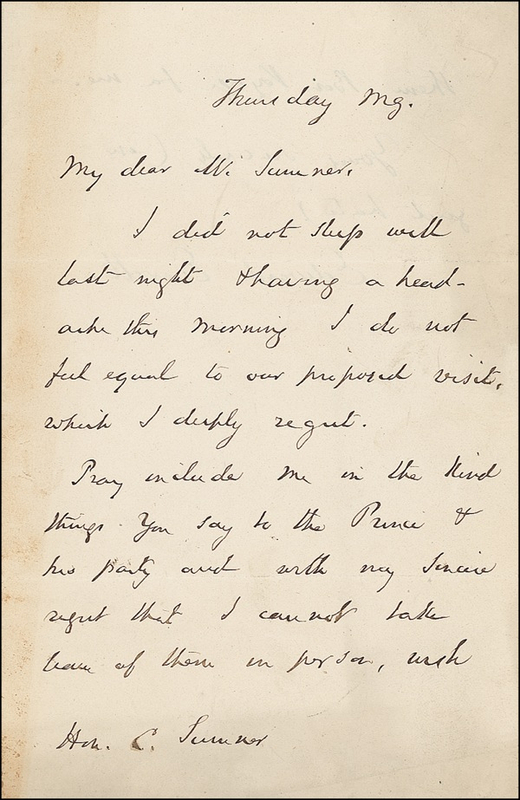 Thursday Mg.
My dear Mr. Sumner,
I did not sleep well
last night & having a head-
ache this morning I do not
feel equal to our proposed visit,
which I deeply regret.
Pray include me in the kind
things you say to the Prince &
his party and with my sincere
regret that I cannot take
leave of them in person, wish
Hon. C. Sumner